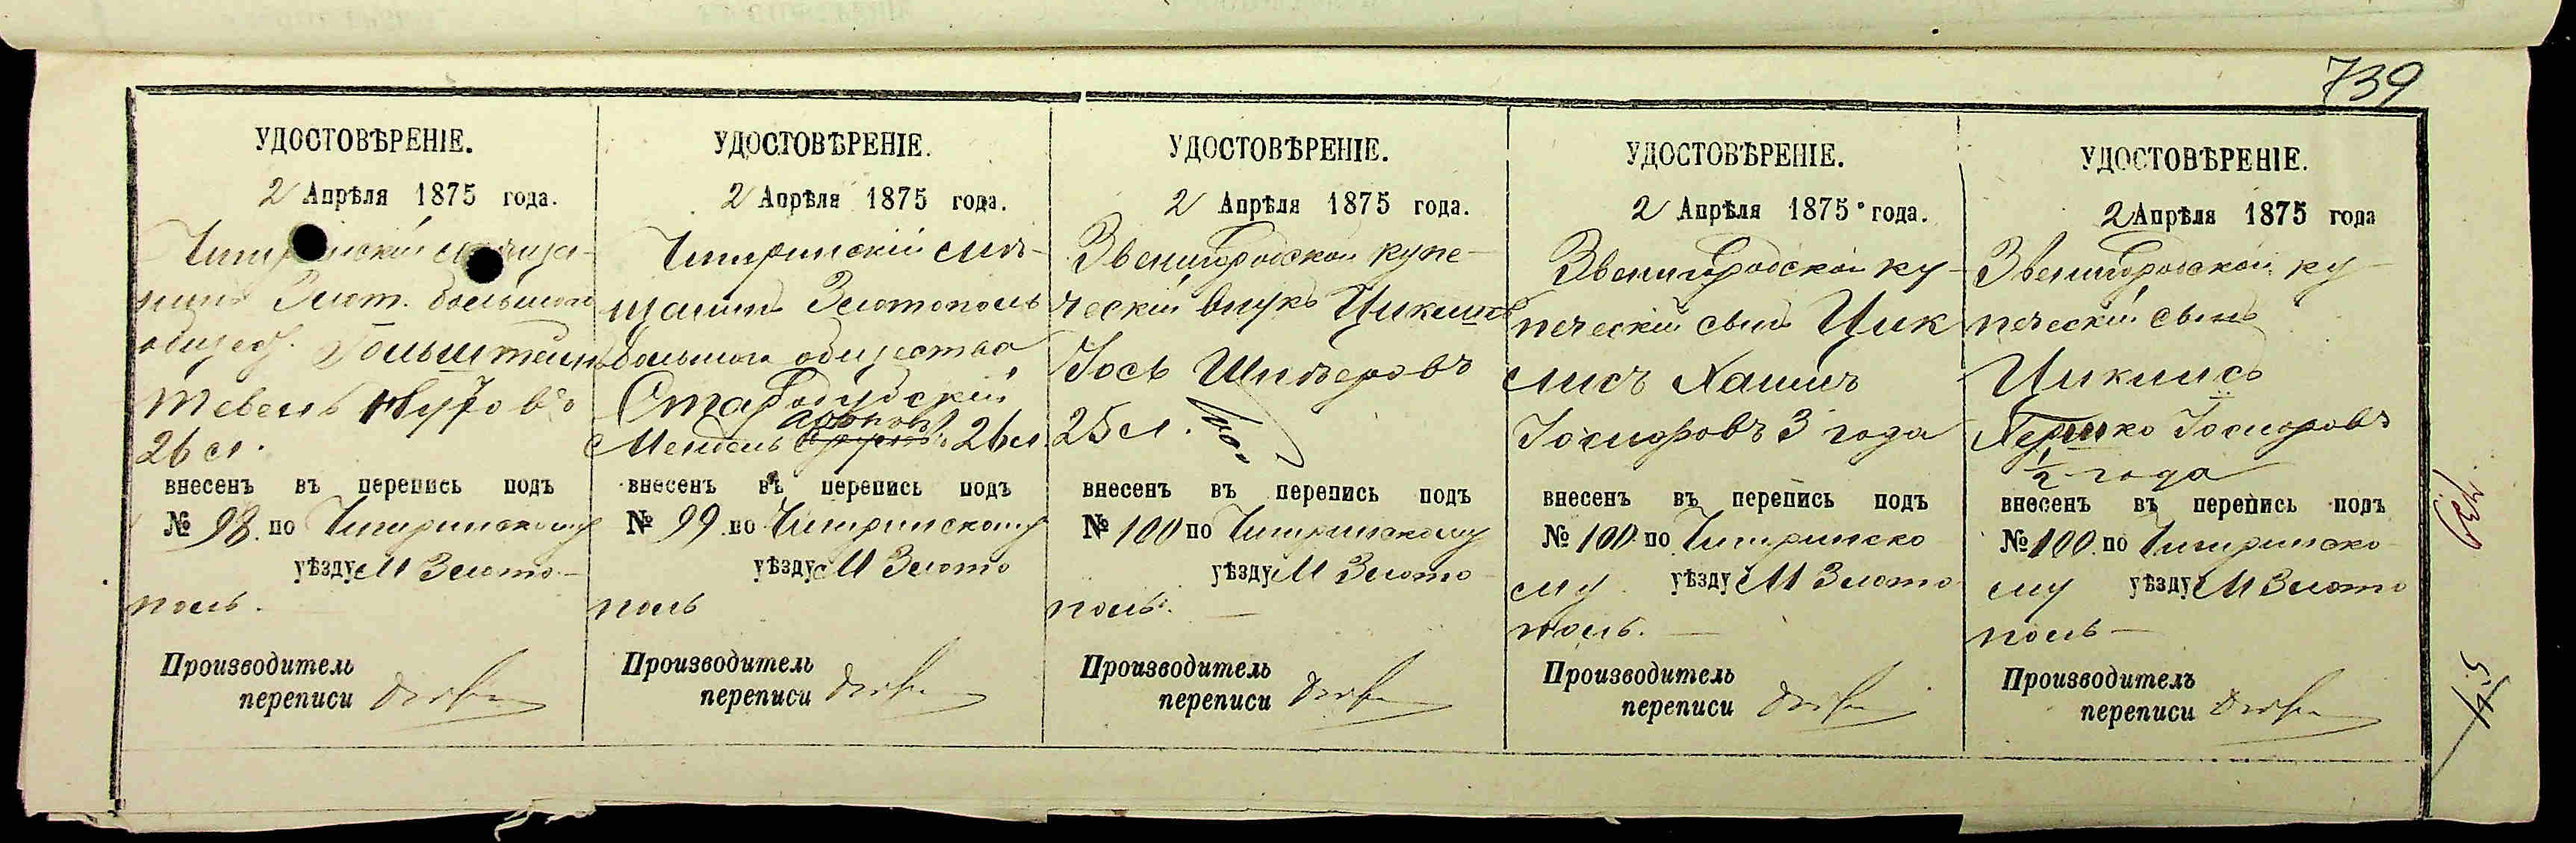 739
УДОСТОВѢРЕНІЕ.
2 Апрѣля 1875 года.
Чигринскій мѣща-
нинъ Злот. большого
общес. Гольштейнъ
Тевель
26 л.
внесенъ въ перепись подъ
№ 98. по Чигринскому
уѣзду М Злото-
поль.
Производитель
переписи
УДОСТОВѢРЕНІЕ.
2 Апрѣля 1875 года.
Чигринскій мѣ-
щанинъ Златополь
большого общества
Стародубскій
Мендель 26 л.
внесенъ въ перепись подъ
№ 99. по Чигринскому
уѣзду М Злото
поль
Производитель
переписи
УДОСТОВѢРЕНІЕ.
2 Апрѣля 1875 года.
Звенигородской купе-
ческій внукъ Циклисъ
Іось Шнѣеровъ
25 л.
внесенъ въ перепись подъ
№ 100 по Чигринскому
уѣзду М Злото
поль. —
Производитель
переписи
УДОСТОВѢРЕНІЕ.
2 Апрѣля 1875 года.
Звенигородской ку-
печескій сынъ Цик
лисъ Хаимъ
Іосиоровъ 3 года
внесенъ въ перепись подъ
№ 100. по Чигринско
му уѣзду М Злото
поль. —
Производитель
переписи
УДОСТОВѢРЕНІЕ.
2 Апрѣля 1875 года
Звенигородской ку
печескій сынъ
Циклисъ
Гершко Іосиоровъ
1/2 года
внесенъ въ перепись подъ
№ 100. по Чигринско
му уѣзду М Злото
поль —
Производитель
переписи